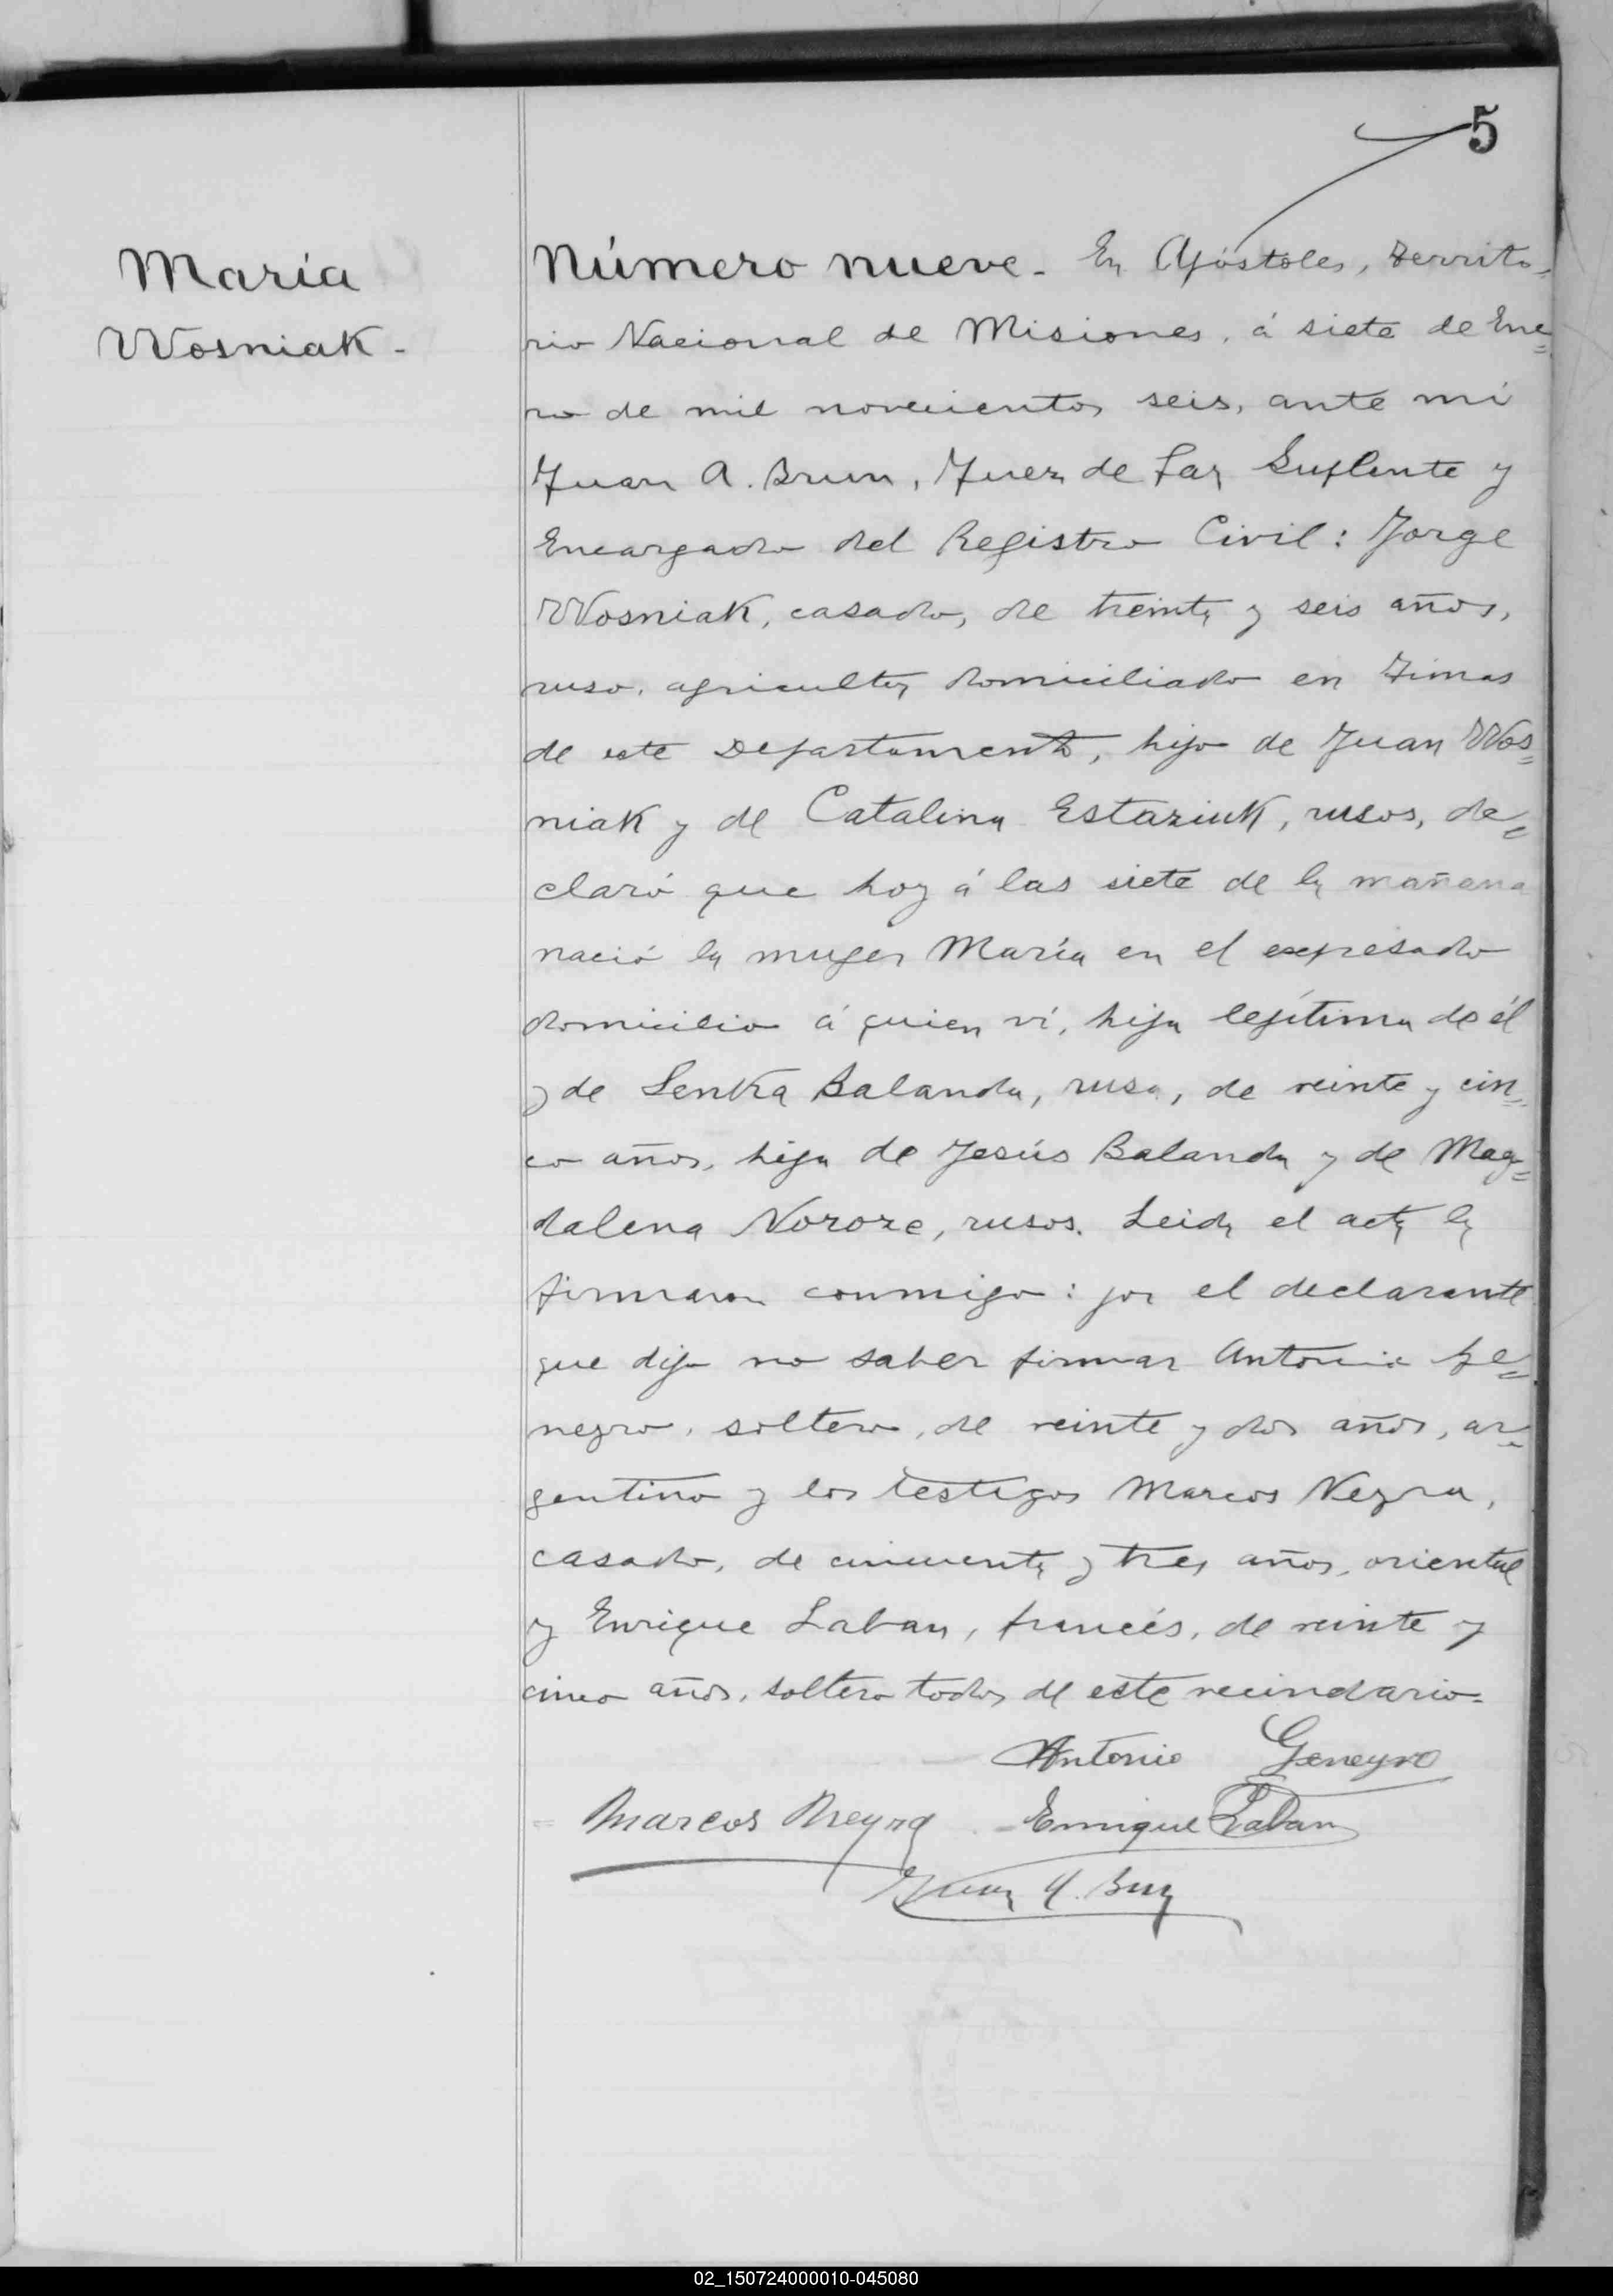 5
María
Wosniak-
Número nueve- En Apóstoles, Territo-
rio Nacional de Misiones, á siete de Ene=
ro de mil novecientos seis, ante mí
Juan A. Brun, Juez de Paz Suplente y
Encargado del Registro Civil: Jorge
Wosniak, casado, de treinta y seis años,
ruso, agricultor, domiciliado en Timas
de este Departamento, hijo de Juan Wos=
niak y de Catalina Estaziuk, rusos, de=
claró que hoy á las siete de la mañana
nació la muger María en el expresado
domicilio á quien ví, hija legítima de él
y de Senka Balanda, rusa, de veinte y cin=
co años, hija de Jesús Balanda y de Mag=
dalena Noroze, rusos. Leida el acta la
firmaron conmigo: por el declarante
que dijo no saber firmar Antonio Ge=
negro, soltero, de veinte y dos años, ar=
gentino y los testigos Marcos Neyra,
casado, de cincuenta y tres años, oriental
y Enrique Laban, francés, de veinte y
cinco años, soltero todos de este vecindario=
Antonio Geneyro
Marcos Neyra Enrique Laban
Juan A. Brun
02_150724000010-045080